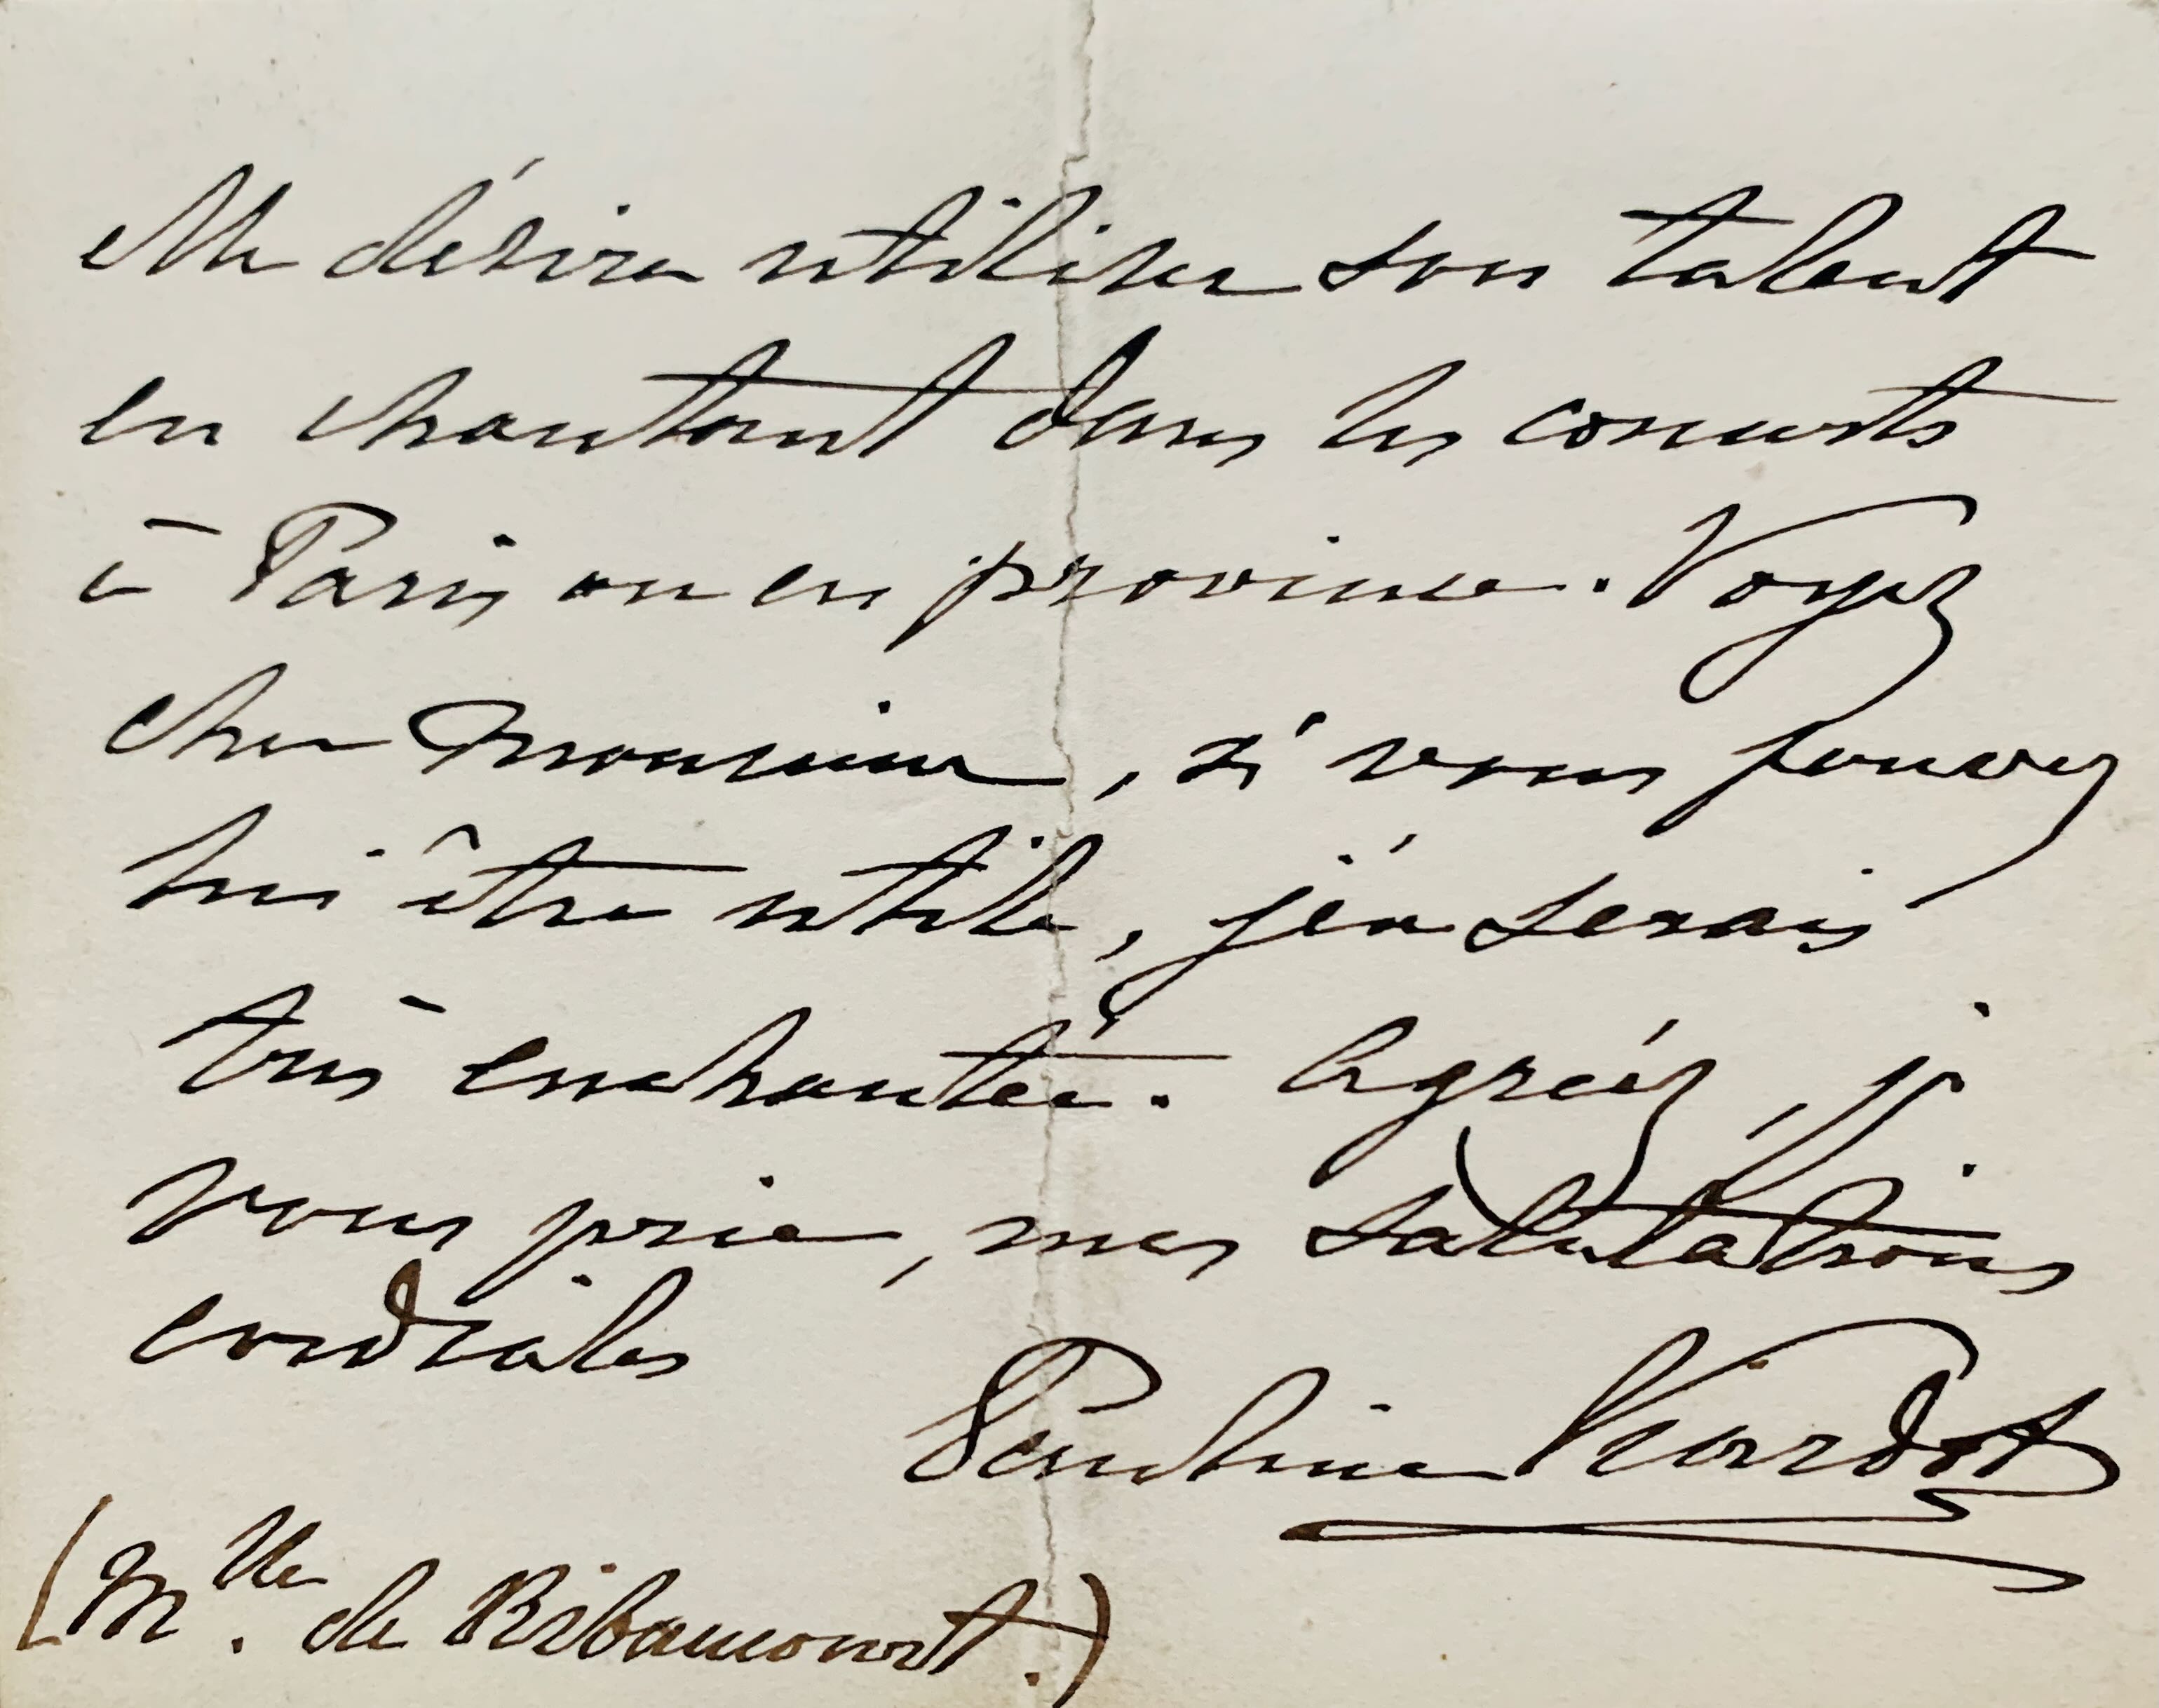 elle désire utiliser son talent
en chantant dans les concerts
à Paris ou en province. Voyez
cher Monsieur, si vous pouvez
lui être utile, j'en serais
très enchantée. Agréez, je
vous prie, mes salutations
cordiales
Pauline Viardot
(Mlle. de Ribaucourt.)